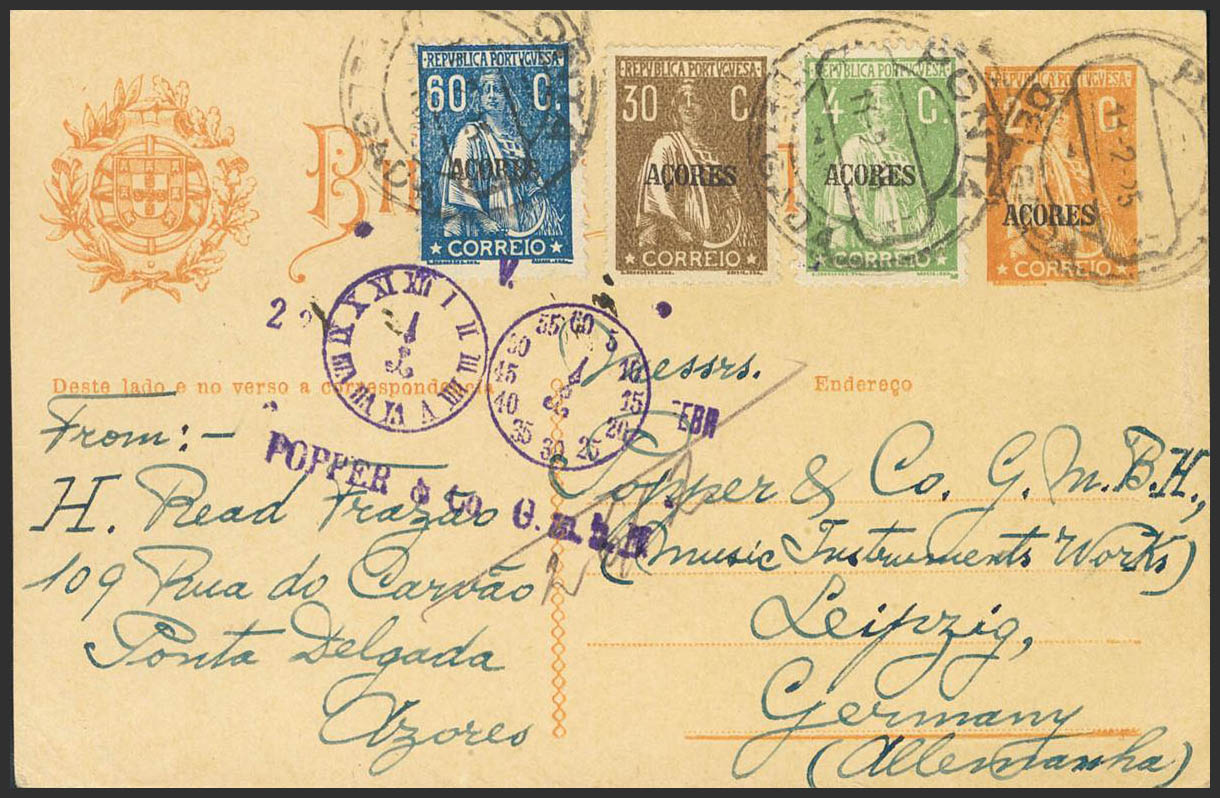 REPUBLICA PORTVGUESA
60 C.
AÇORES
CORREIO
REPUBLICA PORTVGUESA
30 C.
AÇORES
CORREIO
REPUBLICA PORTVGUESA
4 C.
AÇORES
CORREIO
REPUBLICA PORTVGUESA
2 C.
AÇORES
CORREIO
PONTA
Deste lado e no verso a correspondencia
Endereço
I II III IIII V VI VII VIII IX X XI XII
55 60 5 10 15 20 25 30 35 40 45 50
POPPER & Co G.m.b.H
From:-
H. Read Frazão
109 Rua do Carvão
Ponta Delgada
Azores
Messrs.
Popper & Co. G.M.B.H.,
(Music Instruments Works)
Leipzig,
Germany
(Allemanha)